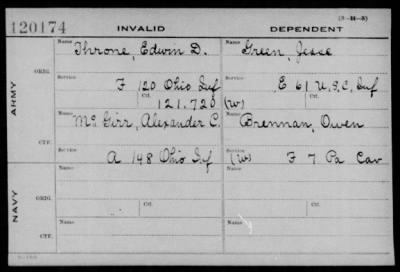 (3-14-3)
120174 INVALID DEPENDENT
Name Name
Throne, Edwin D. Green, Jesse
ORIG.
Service Service
F 120 Ohio Inf E 61 U.S.C. Inf
Ctf. Ctf.
121.720 (W)
ARMY
Name Name
McGirr, Alexander C. Brennan, Owen
CTF.
Service Service
A 148 Ohio Inf (W) F 7 Pa Cav
NAVY
Name Name
ORIG.
Ctf. Ctf.
Name Name
CTF.